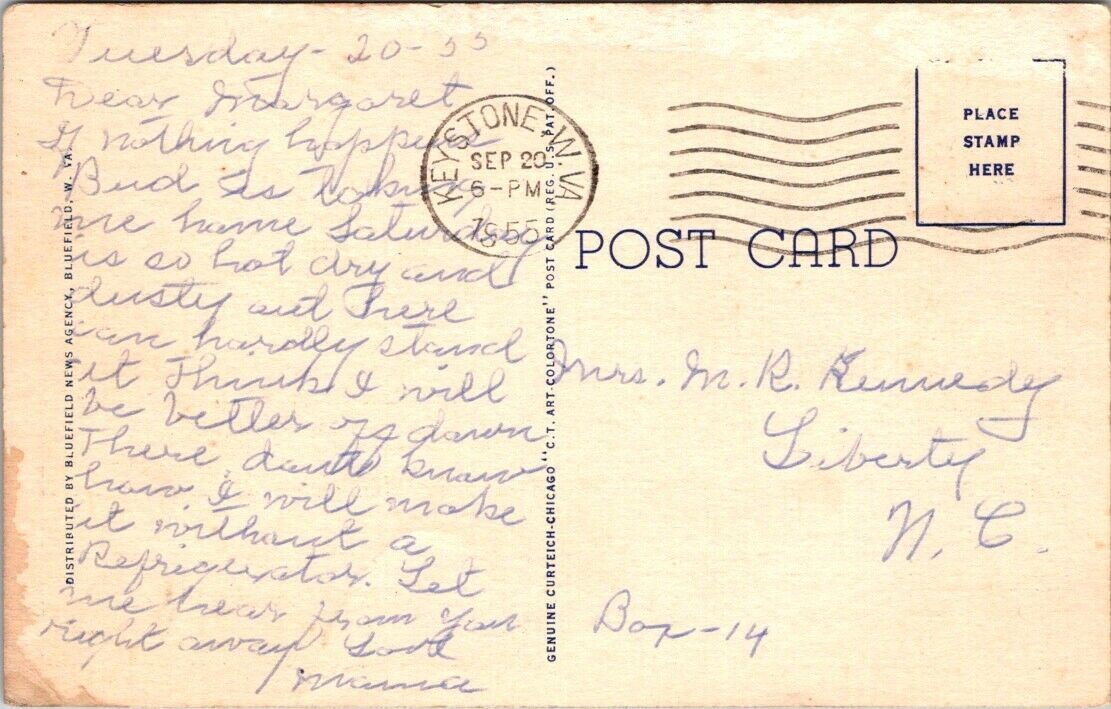 Tuesday - 20 - 55
Dear Margaret
If nothing happens
Bud is taking
me home Saturday
is so hot dry and
dusty out here
can hardly stand
it Think I will
be better off down
There, don't know
how I will make
it without a
Refrigerator. Let
me hear from you
right away Love
Mama
DISTRIBUTED BY BLUEFIELD NEWS AGENCY, BLUEFIELD, W. VA.
KEYSTONE, W. VA.
SEP 20
6-PM
1955
GENUINE CURTEICH-CHICAGO "C.T. ART-COLORTONE" POST CARD (REG. U.S. PAT. OFF.)
POST CARD
PLACE
STAMP
HERE
Mrs. M. R. Kennedy
Liberty
N. C.
Box - 14